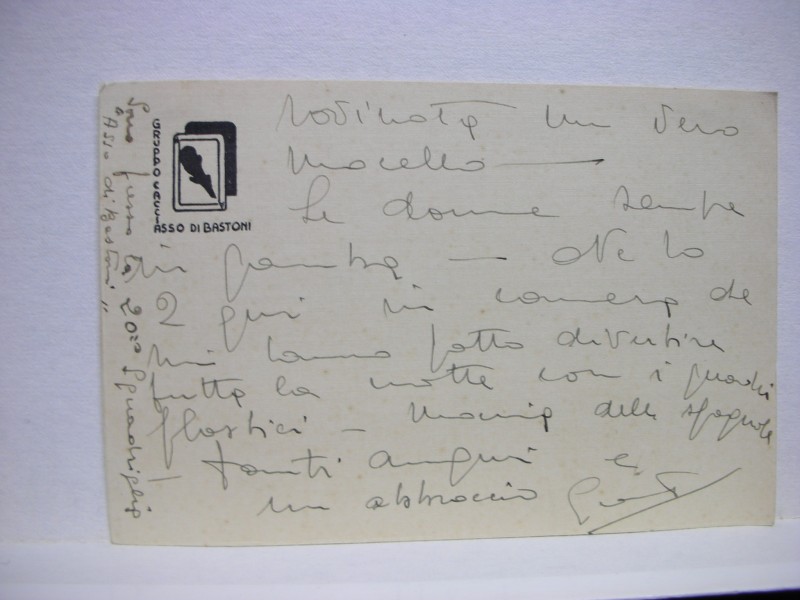 GRUPPO CACCIA
ASSO DI BASTONI
rovinata un vero
macello
Le donne sempre
in gamba — Ne ho
2 qui in camera che
mi hanno fatto divertire
tutta la notte con i quadri
plastici — Mania delle spagnole
Tanti auguri e
un abbraccio
Sono presso la 20ª Squadriglia
"Asso di Bastoni"